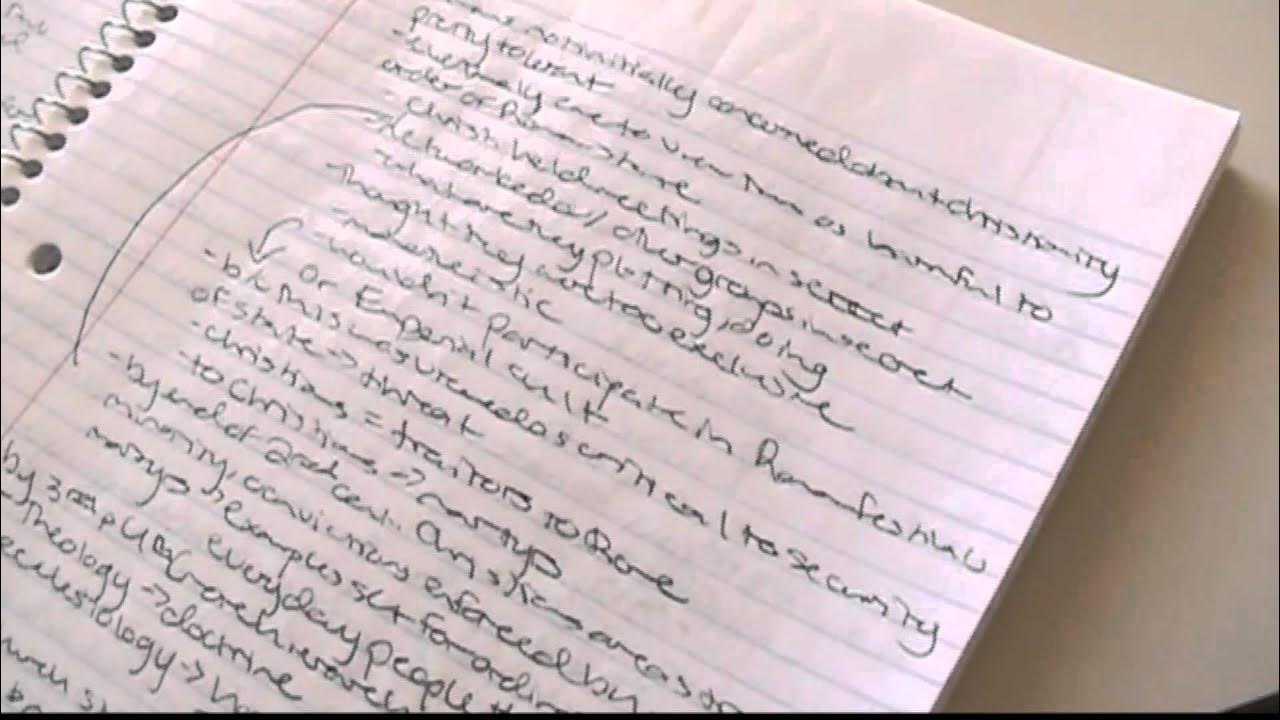 not initially concerned about christianity
pretty tolerant
- eventually came to view them as harmful to
order of Roman state
- christ. held meetings in secret
- networked w/ other groups in secret
- what are they plotting, doing
- Thought they were too exclusive
- monotheistic
- wouldn't participate in Roman festivals
or Emperial cult
- b/c this was viewed as critical to security
of state -> threat
- christians = traitors to Rome
- to Christians -> martyrs
- by end of 2nd cent. Christians are a
minority, convictions enforced by
martyrs -> examples set for
everyday people
by 3rd church
- Theology -> doctrine
ecclesiology ->